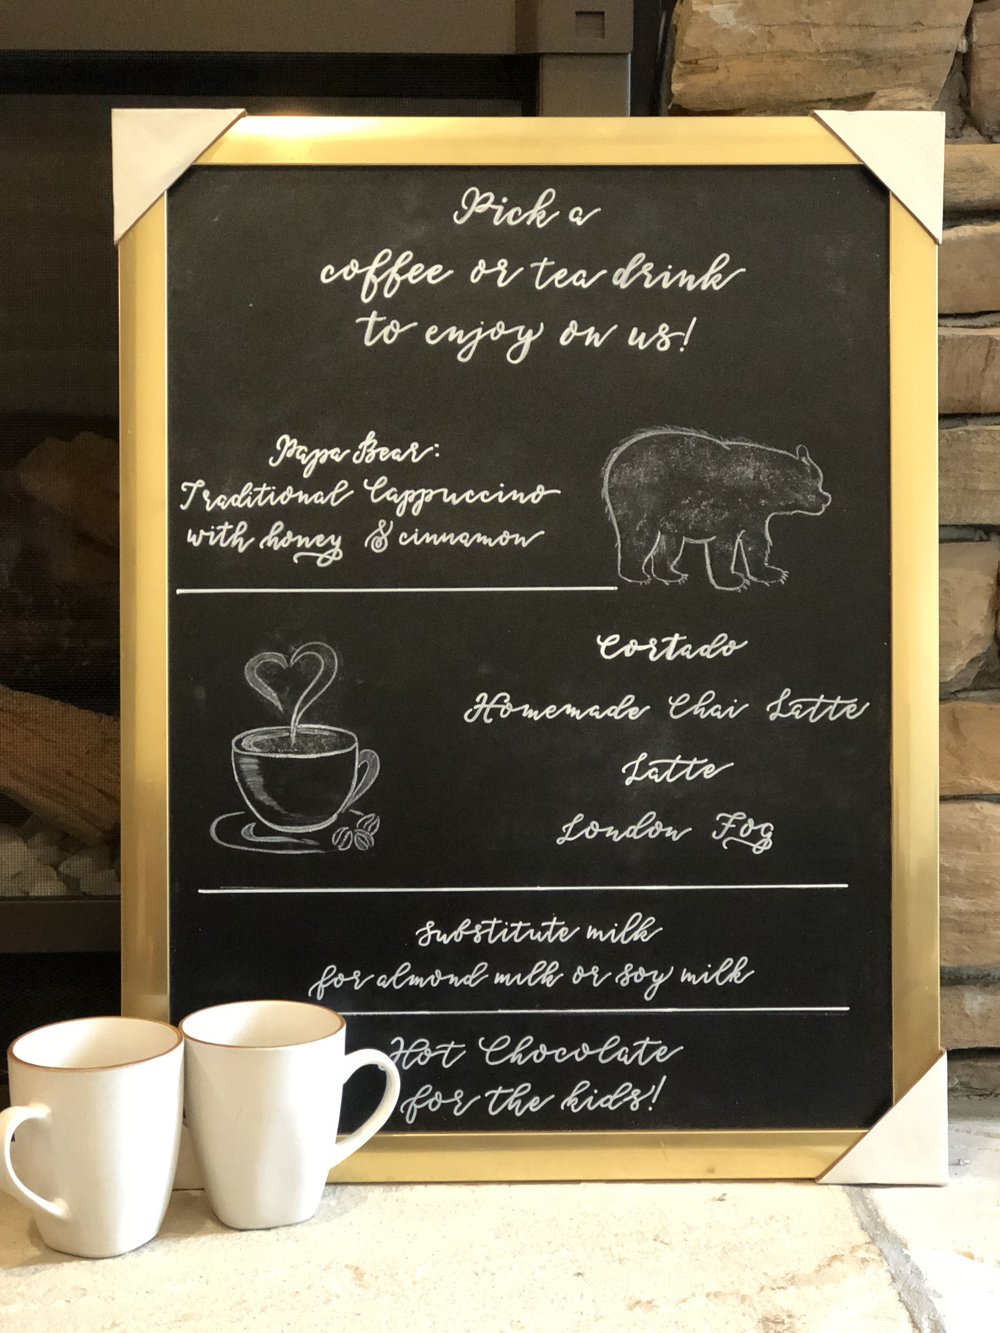 Pick a
coffee or tea drink
to enjoy on us!
Papa Bear:
Traditional Cappuccino
with honey & cinnamon
Cortado
Homemade Chai Latte
Latte
London Fog
Substitute milk
for almond milk or soy milk
Hot Chocolate
for the kids!